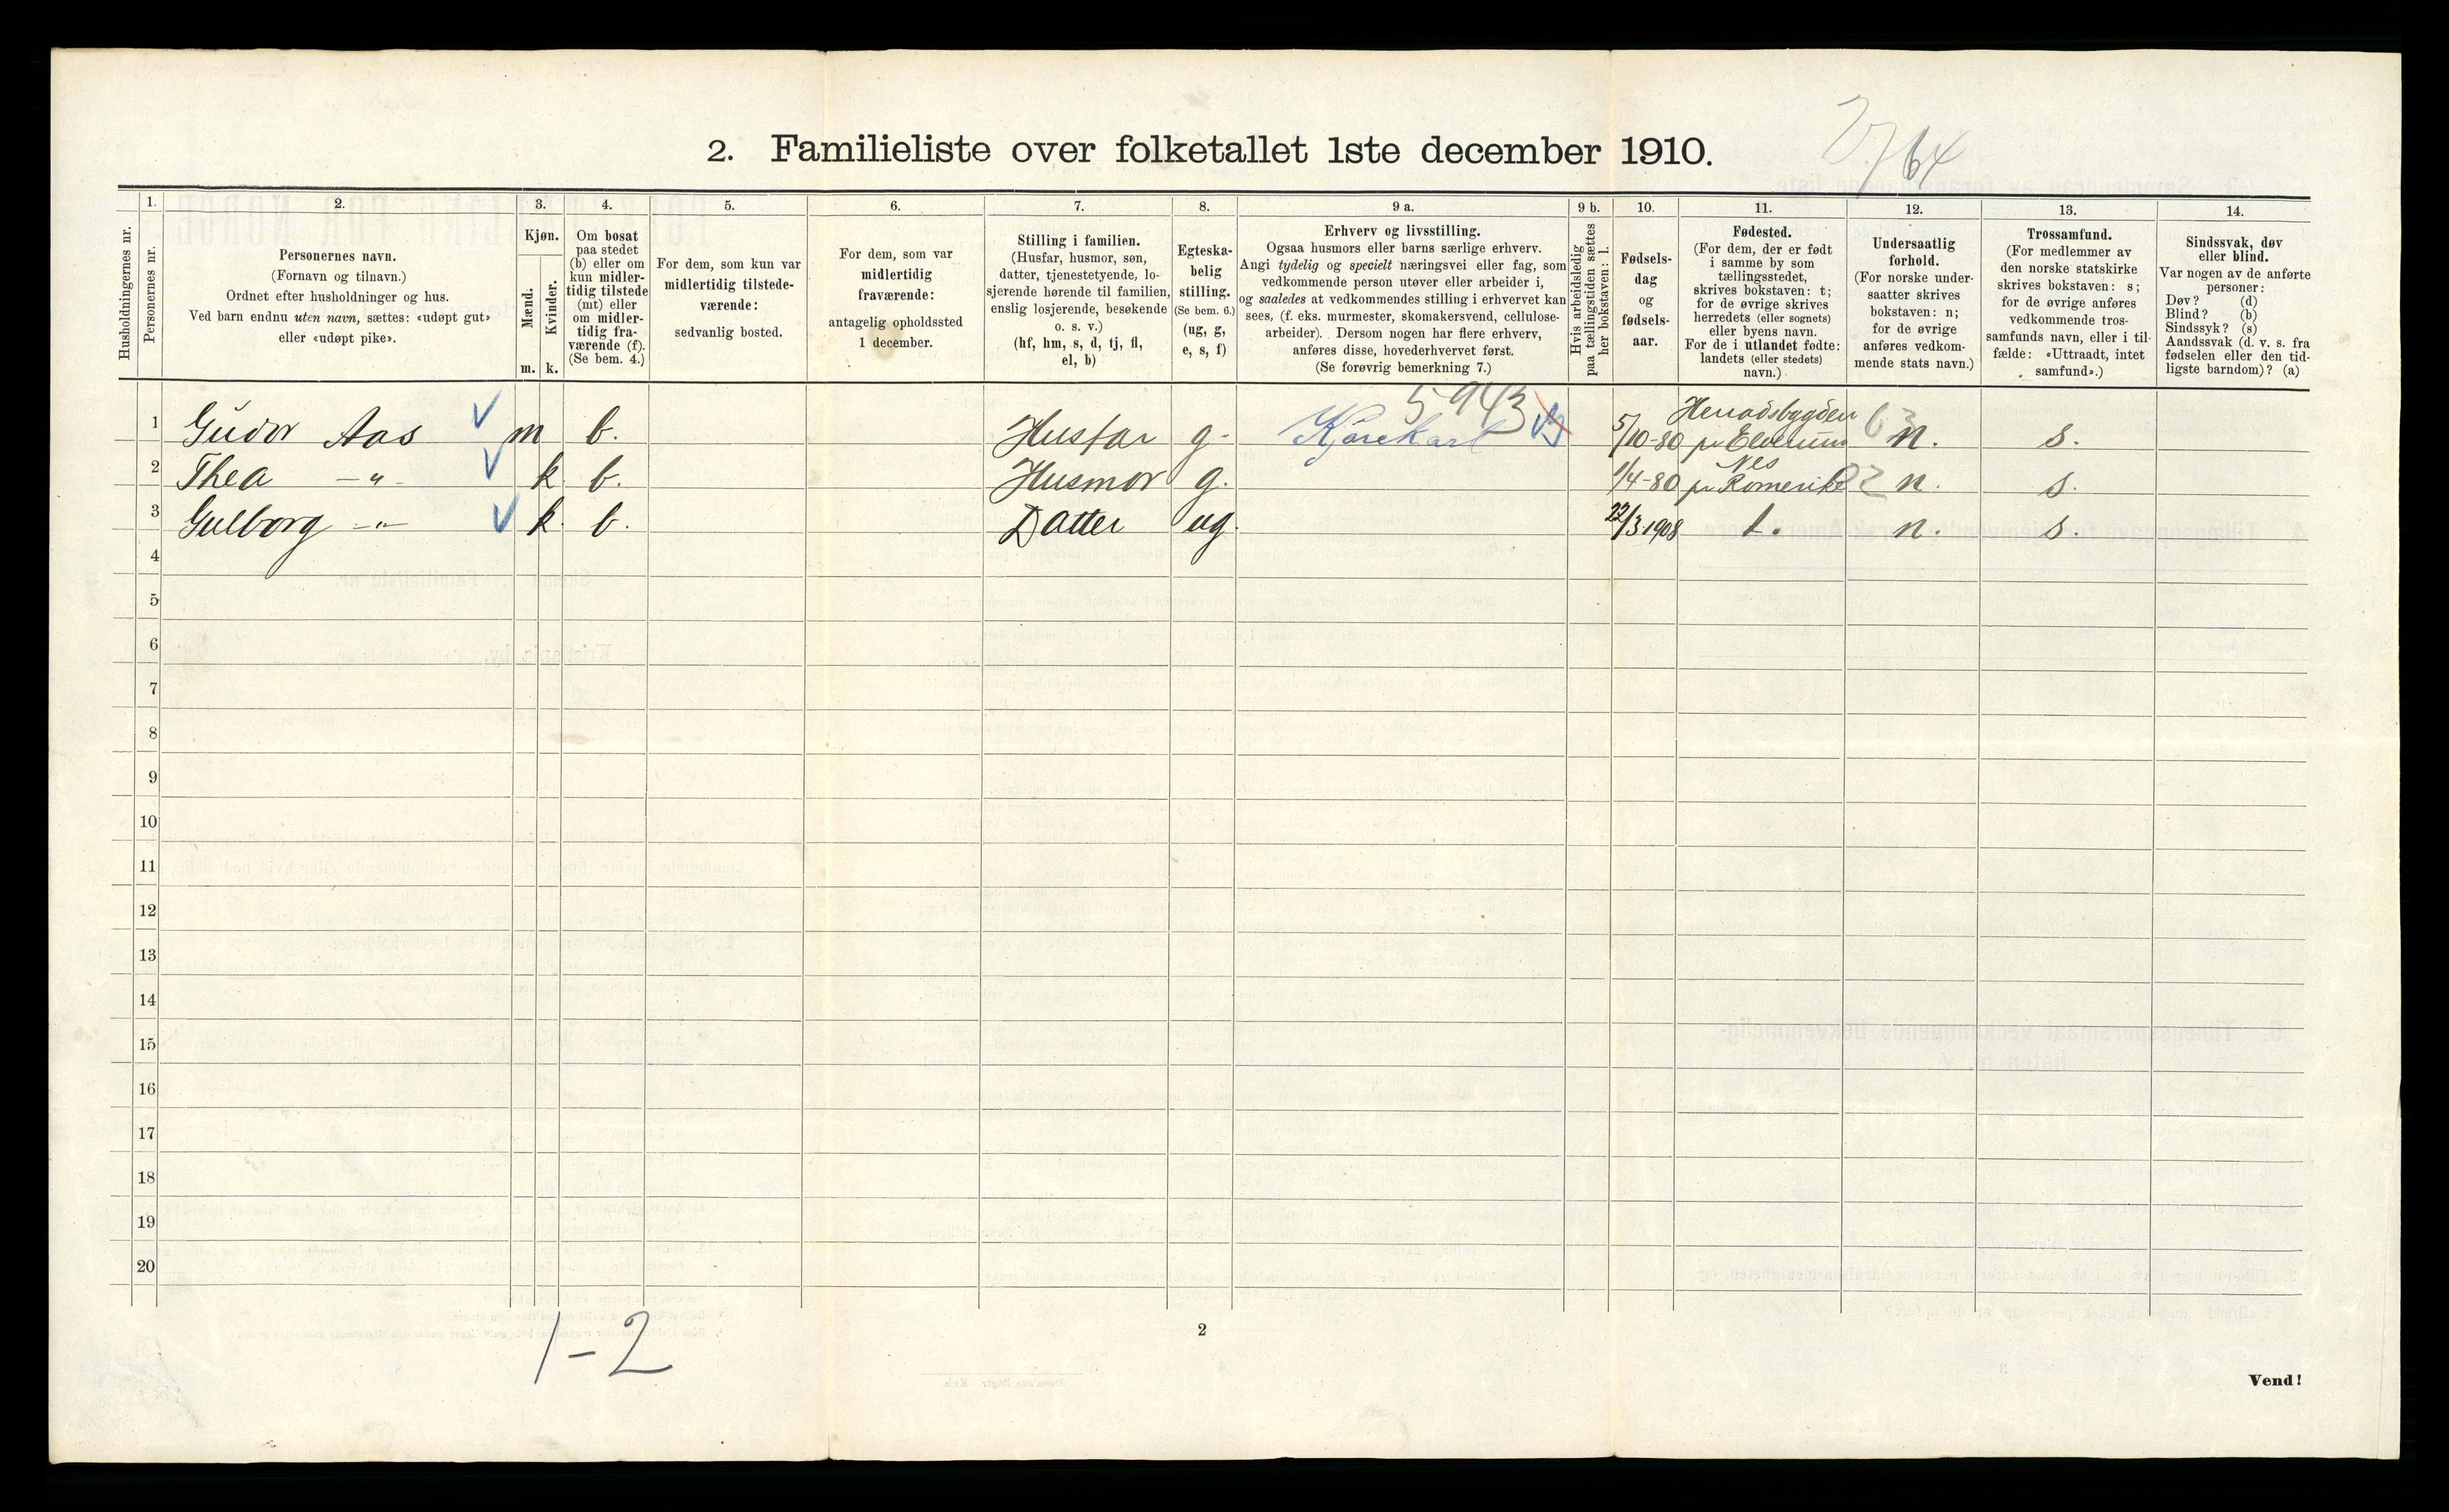 2. Familieliste over folketallet 1ste december 1910.
2764
Husholdningernes nr.
1.
Personernes nr.
2.
Personernes navn.
(Fornavn og tilnavn.)
Ordnet efter husholdninger og hus.
Ved barn endnu uten navn, sættes: «udøpt gut»
eller «udøpt pike».
3.
Kjøn.
Mænd.
Kvinder.
m. k.
4.
Om bosat
paa stedet
(b) eller om
kun midler-
tidig tilstede
(mt) eller
om midler-
tidig fra-
værende (f).
(Se bem. 4.)
5.
For dem, som kun var
midlertidig tilstede-
værende:
sedvanlig bosted.
6.
For dem, som var
midlertidig
fraværende:
antagelig opholdssted
1 december.
7.
Stilling i familien.
(Husfar, husmor, søn,
datter, tjenestetyende, lo-
sjerende hørende til familien,
enslig losjerende, besøkende
o. s. v.)
(hf, hm, s, d, tj, fl,
el, b)
8.
Egteska-
belig
stilling.
(Se bem. 6.)
(ug, g,
e, s, f)
9 a.
Erhverv og livsstilling.
Ogsaa husmors eller barns særlige erhverv.
Angi tydelig og specielt næringsvei eller fag, som
vedkommende person utøver eller arbeider i,
og saaledes at vedkommendes stilling i erhvervet kan
sees, (f. eks. murmester, skomakersvend, cellulose-
arbeider). Dersom nogen har flere erhverv,
anføres disse, hovederhvervet først.
(Se forøvrig bemerkning 7.)
9 b.
Hvis arbeidsledig
paa tællingstiden sættes
her bokstaven: l.
10.
Fødsels-
dag
og
fødsels-
aar.
11.
Fødested.
(For dem, der er født
i samme by som
tællingsstedet,
skrives bokstaven: t;
for de øvrige skrives
herredets (eller sognets)
eller byens navn.
For de i utlandet fødte:
landets (eller stedets)
navn.)
12.
Undersaatlig
forhold.
(For norske under-
saatter skrives
bokstaven: n;
for de øvrige
anføres vedkom-
mende stats navn.)
13.
Trossamfund.
(For medlemmer av
den norske statskirke
skrives bokstaven: s;
for de øvrige anføres
vedkommende tros-
samfunds navn, eller i til-
fælde: «Uttraadt, intet
samfund».)
14.
Sindssvak, døv
eller blind.
Var nogen av de anførte
personer:
Døv? (d)
Blind? (b)
Sindssyk? (s)
Aandssvak (d. v. s. fra
fødselen eller den tid-
ligste barndom)? (a)
5943
1 Gudor Aas m b. Husfar g. Kjørekarl 5/10-80 Herradsbygden pr Elverum 63 n. s.
2 Thea -"- k. b. Husmor g. 1/4-80 Nes pr Romerike 22 n. s.
3 Gulborg -"- k. b. Datter ug. 22/3 1908 t. n. s.
4
5
6
7
8
9
10
11
12
13
14
15
16
17
18
19
20
1-2
2
Vend!